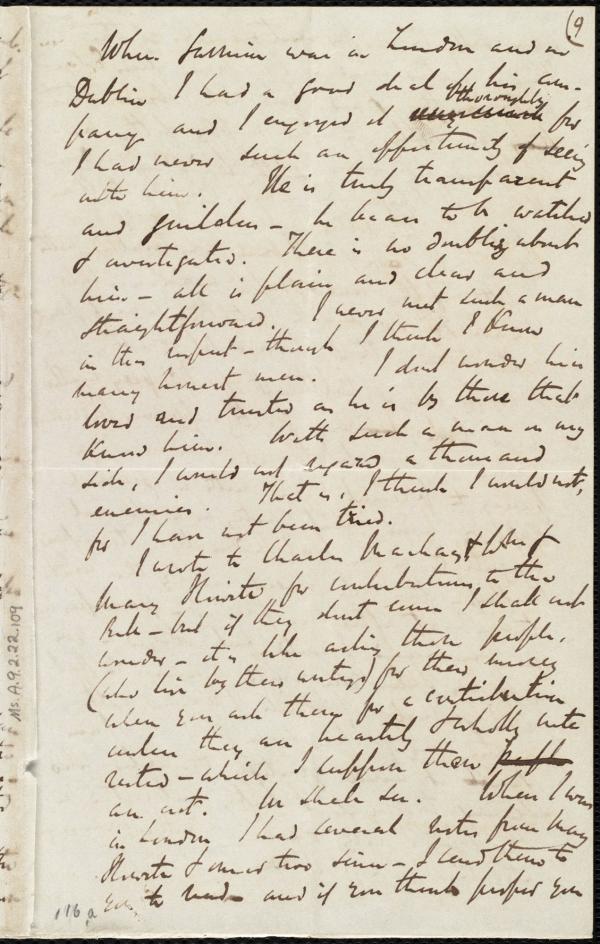 (9
When Garrison was in London and in
Dublin I had a good deal of his com-
pany and I enjoyed it thoroughly for
I had never such an opportunity of being
with him. He is truly transparent
and guileless - he bears to be watched
& investigated. There is no doubling about
him - all is plain and clear and
straightforward. I never met such a man
in this respect - though I think I know
many honest men. I dont wonder his
loved and trusted as he is by those that
know him. With such a man on my
side, I would not regard a thousand
enemies. That is, I think I would not,
for I have not been tried.
I wrote to Charles Mackay & to
Mary Howitt for contributions to the
- but if they dont come I shall not
wonder - it is like asking these people,
(who live by their writings) for their money
when you ask them for a contribution
unless they are heartily & wholly inte
rested - which I suppose these
are not. We shall see. When I was
in London I had several notes from Mary
Howitt & one or two since - I send them to
you to read - and if you think proper you
Ms.A.9.2.22.109
116 a